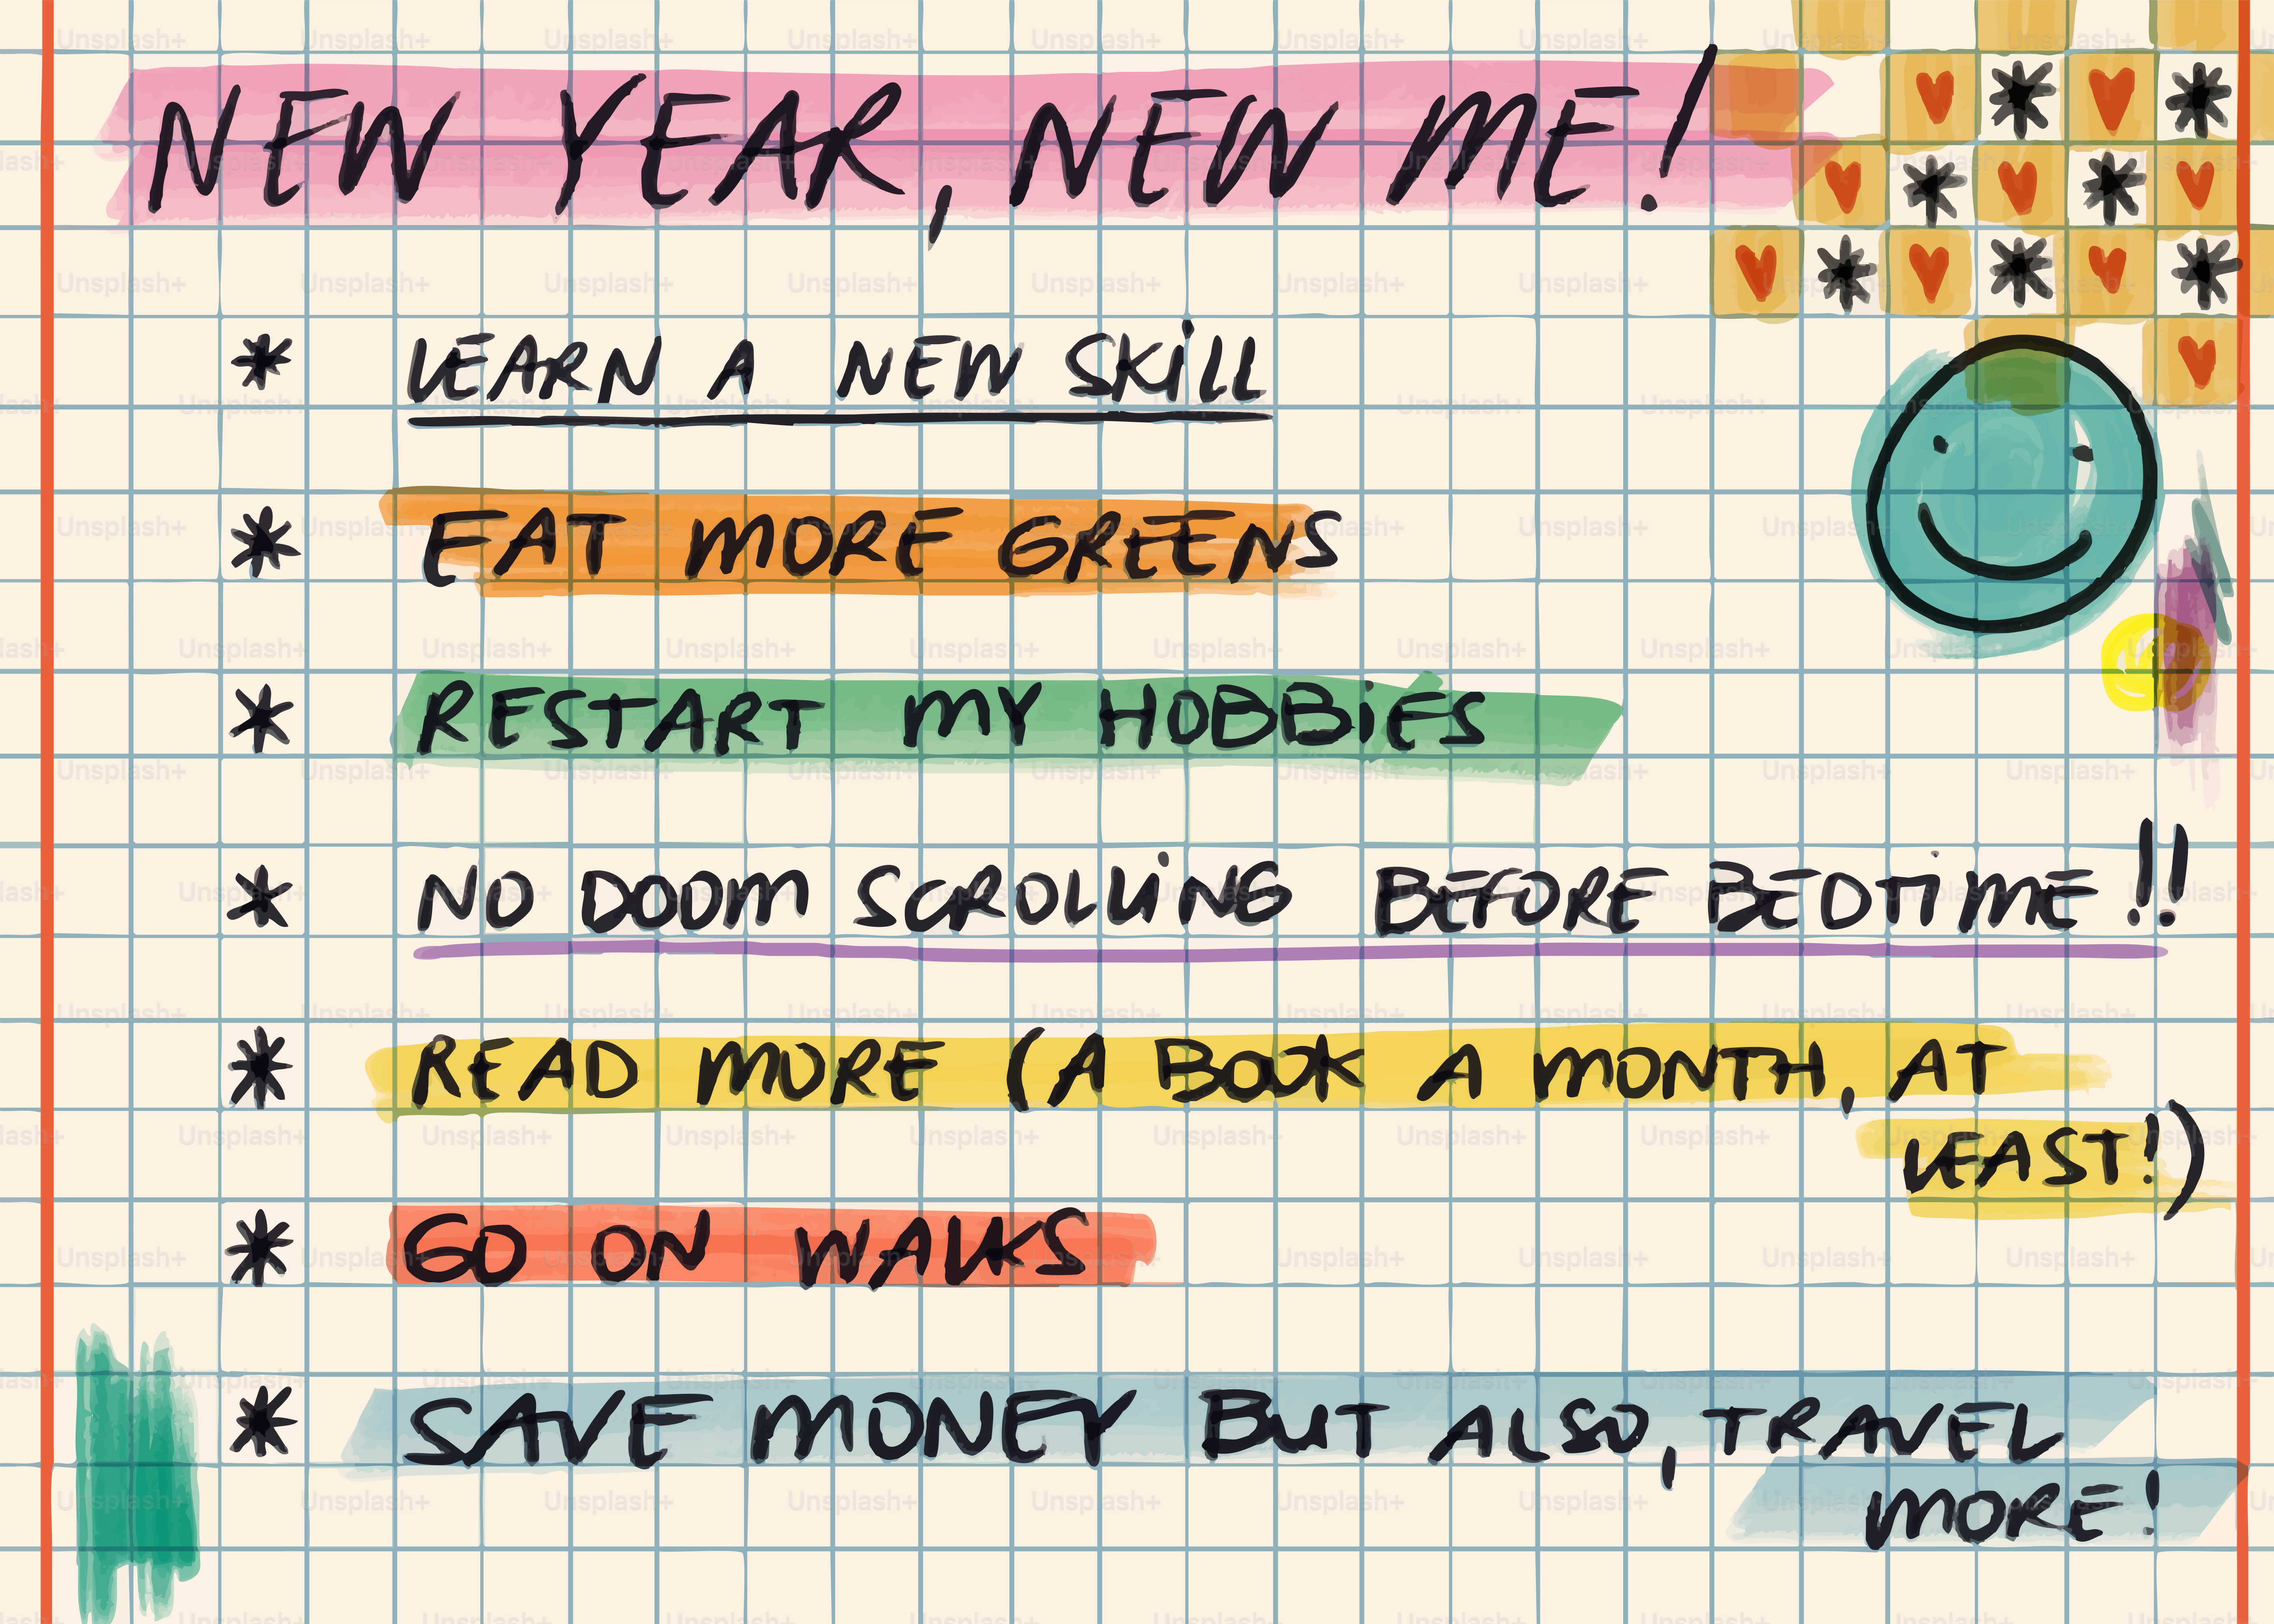 NEW YEAR, NEW ME!
* LEARN A NEW SKILL
* EAT MORE GREENS
* RESTART MY HOBBIES
* NO DOOM SCROLLING BEFORE BEDTIME!!
* READ MORE (A BOOK A MONTH, AT
LEAST!)
* GO ON WALKS
* SAVE MONEY BUT ALSO, TRAVEL
MORE!
Unsplash+